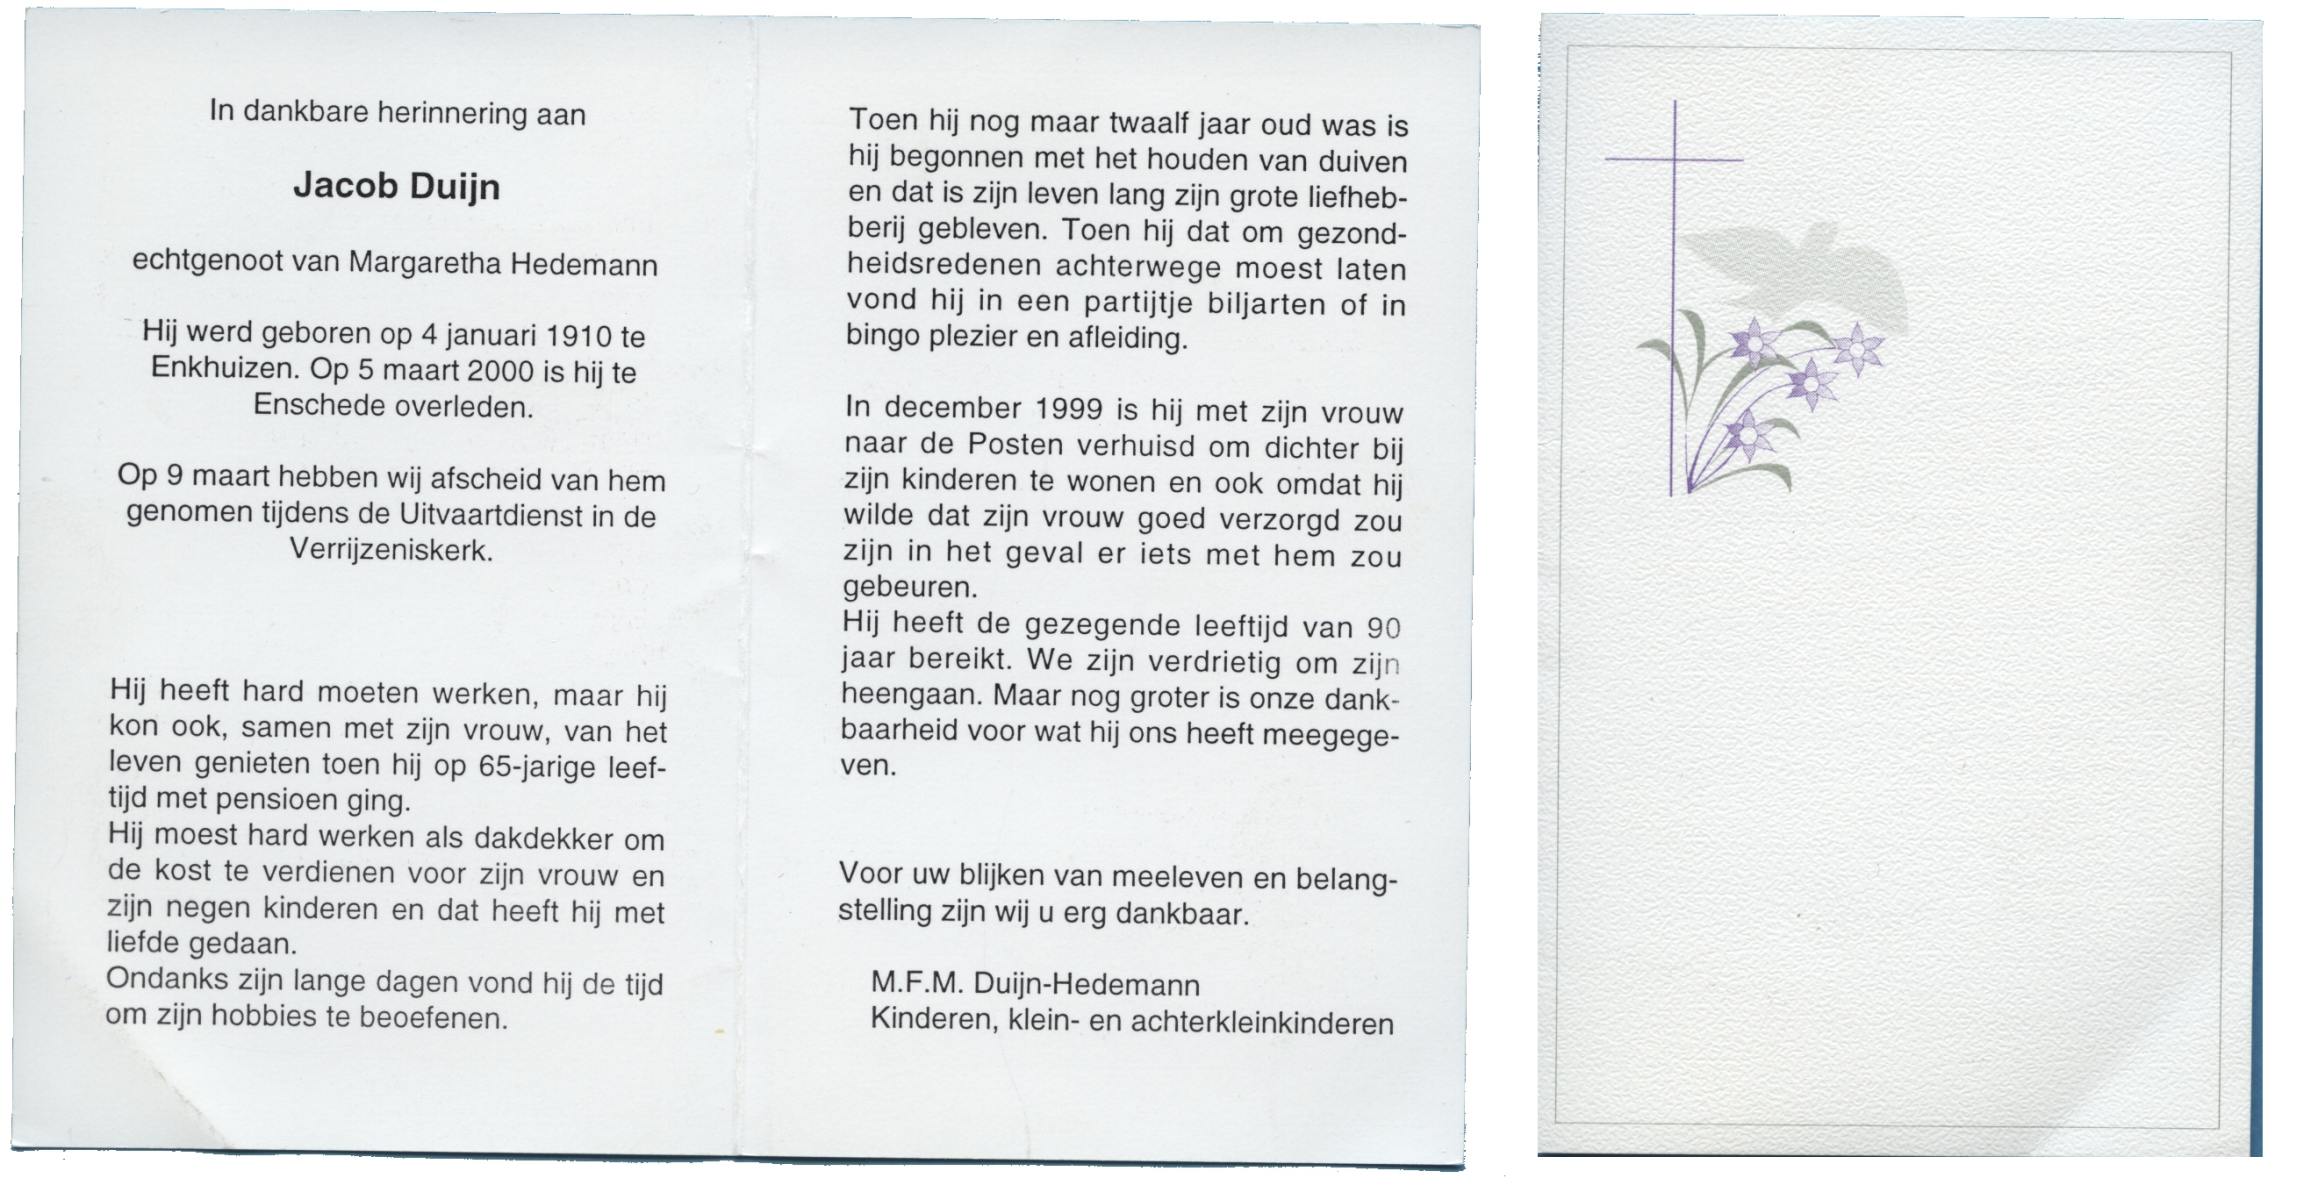 In dankbare herinnering aan
Jacob Duijn
echtgenoot van Margaretha Hedemann
Hij werd geboren op 4 januari 1910 te
Enkhuizen. Op 5 maart 2000 is hij te
Enschede overleden.
Op 9 maart hebben wij afscheid van hem
genomen tijdens de Uitvaartdienst in de
Verrijzeniskerk.
Hij heeft hard moeten werken, maar hij
kon ook, samen met zijn vrouw, van het
leven genieten toen hij op 65-jarige leef-
tijd met pensioen ging.
Hij moest hard werken als dakdekker om
de kost te verdienen voor zijn vrouw en
zijn negen kinderen en dat heeft hij met
liefde gedaan.
Ondanks zijn lange dagen vond hij de tijd
om zijn hobbies te beoefenen.
Toen hij nog maar twaalf jaar oud was is
hij begonnen met het houden van duiven
en dat is zijn leven lang zijn grote liefheb-
berij gebleven. Toen hij dat om gezond-
heidsredenen achterwege moest laten
vond hij in een partijtje biljarten of in
bingo plezier en afleiding.
In december 1999 is hij met zijn vrouw
naar de Posten verhuisd om dichter bij
zijn kinderen te wonen en ook omdat hij
wilde dat zijn vrouw goed verzorgd zou
zijn in het geval er iets met hem zou
gebeuren.
Hij heeft de gezegende leeftijd van 90
jaar bereikt. We zijn verdrietig om zijn
heengaan. Maar nog groter is onze dank-
baarheid voor wat hij ons heeft meegege-
ven.
Voor uw blijken van meeleven en belang-
stelling zijn wij u erg dankbaar.
M.F.M. Duijn-Hedemann
Kinderen, klein- en achterkleinkinderen